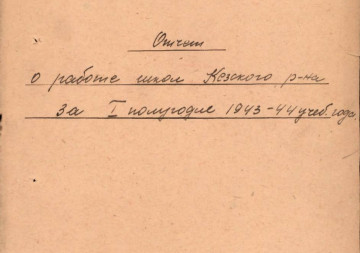 Отчет
о работе школ Кезского р-на
за I полугодие 1943-44 учеб. года.